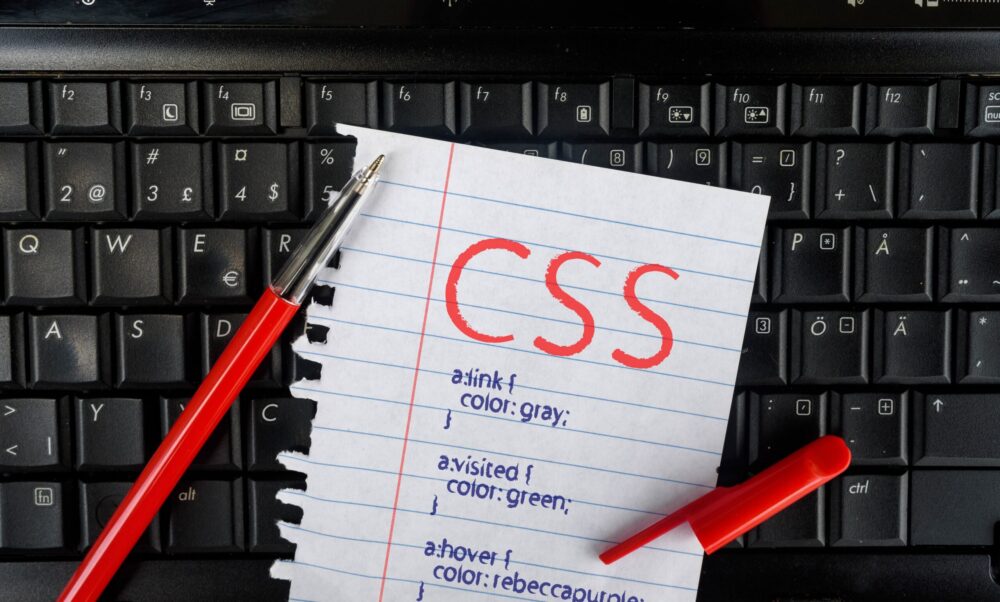 f2 f3 f4 f5 f6 f7 f8 f9 f10 f11 f12
" # ¤ % ( 8 ) 9 = ?
2 @ 3 £ 4 $ 5 } + \
Q W E € R P * Å ^
A S D 3 Ö - Ä *
> Y C : - +
< |
fn alt ctrl
CSS
a:link {
color: gray;
}
a:visited {
color: green;
}
a:hover {
color: rebeccapurple;
}